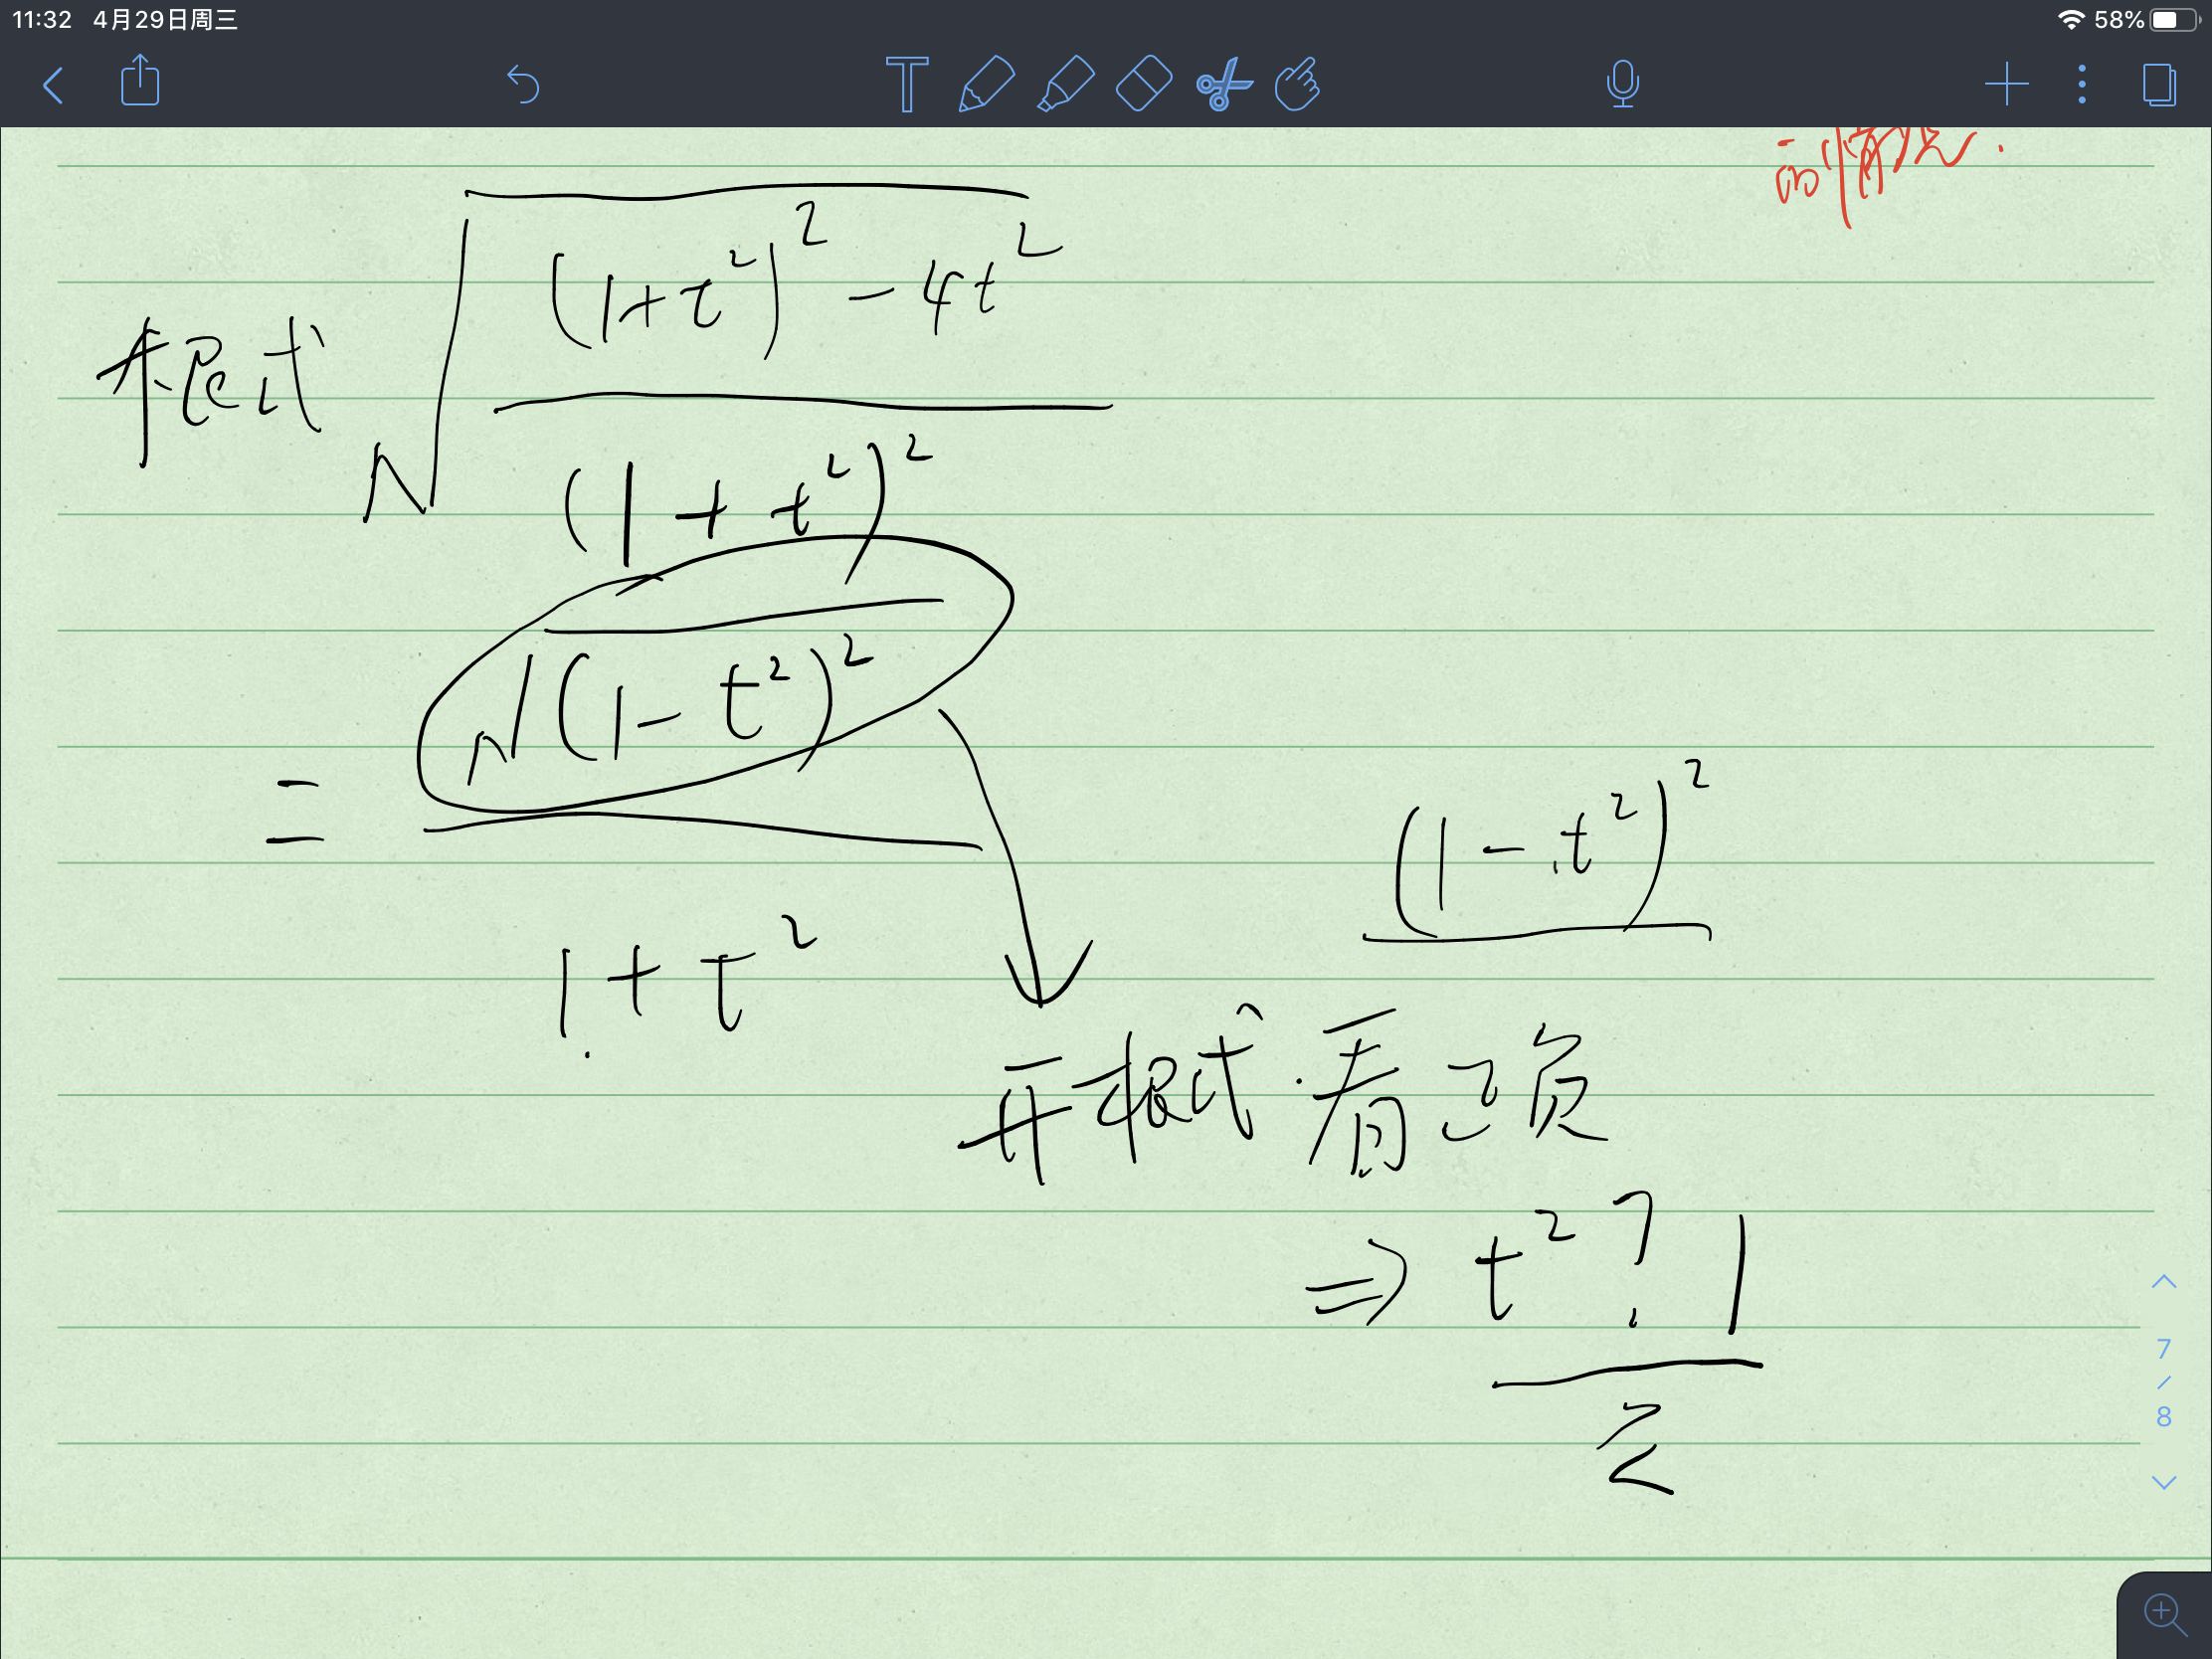 11:32 4月29日周三
58%
的情况.
根式 √(((1+t²)²-4t²)/(1+t²)²)
= √((1-t²)²)/(1+t²)
(1-t²)²
开根式看正负
⇒ t² ? 1
7
/
8